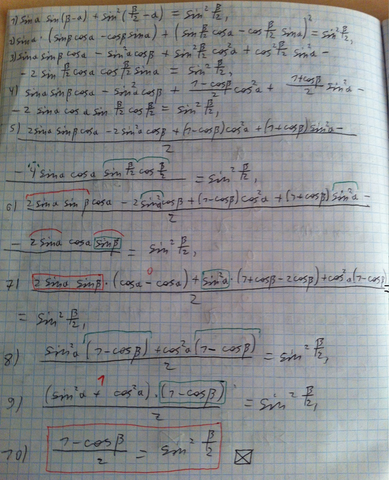 1) sinα sin(β-α) + sin²(β/2 - α) = sin² β/2,
2) sinα · (sinβ cosα - cosβ sinα) + (sin β/2 cosα - cos β/2 sinα)² = sin² β/2,
3) sinα sinβ cosα - sin²α cosβ + sin² β/2 cos²α + cos² β/2 sin²α -
- 2 sin β/2 cosα cos β/2 sinα = sin² β/2,
4) sinα sinβ cosα - sin²α cosβ + (1-cosβ)/2 cos²α + (1+cosβ)/2 sin²α -
- 2 sinα cosα sin β/2 cos β/2 = sin² β/2,
5) 2 sinα sinβ cosα - 2 sin²α cosβ + (1-cosβ) cos²α + (1+cosβ) sin²α -
2
- 4 sinα cosα sin β/2 cos β/2 = sin² β/2,
6) 2 sinα sinβ cosα - 2 sin²α cosβ + (1-cosβ) cos²α + (1+cosβ) sin²α -
2
- 2 sinα cosα sinβ = sin² β/2,
0
7) 2 sinα sinβ · (cosα - cosα) + sin²α · (1+cosβ-2cosβ) + cos²α (1-cosβ) =
2
= sin² β/2,
8) sin²α (1-cosβ) + cos²α (1-cosβ) / 2 = sin² β/2,
1
9) (sin²α + cos²α) · (1-cosβ) / 2 = sin² β/2,
10) (1-cosβ)/2 = sin² β/2